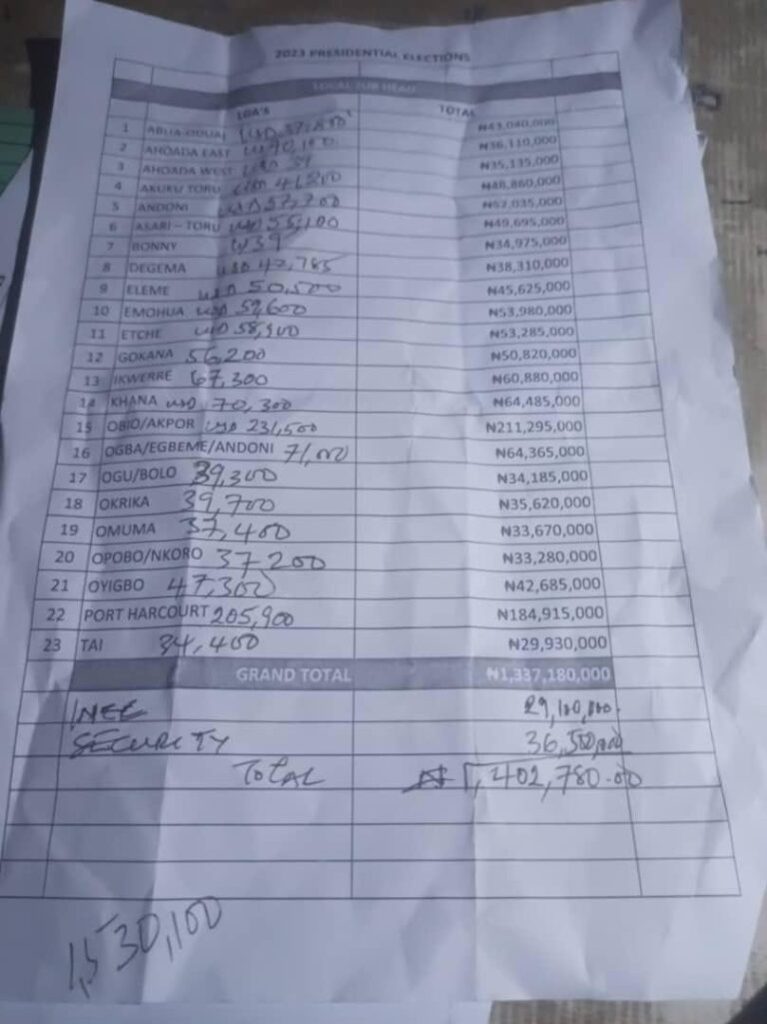 2023 PRESIDENTIAL ELECTIONS
LGA'S TOTAL
1 ₦43,040,000
2 AHOADA EAST ₦36,110,000
3 AHOADA WEST ₦35,135,000
4 AKUKU TORU ₦48,860,000
5 ANDONI ₦52,035,000
6 ASARI - TORU USD 55,100 ₦49,695,000
7 BONNY ₦34,975,000
8 DEGEMA USD 42,785 ₦38,310,000
9 ELEME USD 50,500 ₦45,625,000
10 EMOHUA USD 59,600 ₦53,980,000
11 ETCHE USD 58,900 ₦53,285,000
12 GOKANA 56,200 ₦50,820,000
13 IKWERRE 67,300 ₦60,880,000
14 KHANA USD 70,300 ₦64,485,000
15 OBIO/AKPOR USD 231,500 ₦211,295,000
16 OGBA/EGBEME/ANDONI ₦64,365,000
17 OGU/BOLO 39,300 ₦34,185,000
18 OKRIKA 39,700 ₦35,620,000
19 OMUMA 37,400 ₦33,670,000
20 OPOBO/NKORO 37200 ₦33,280,000
21 OYIGBO 47,300 ₦42,685,000
22 PORT HARCOURT 205,900 ₦184,915,000
23 TAI 34,400 ₦29,930,000
GRAND TOTAL ₦1,337,180,000
INEC 29,100,000.
SECURITY 36,500,000
TOTAL ₦1,402,780.00
1,530,100